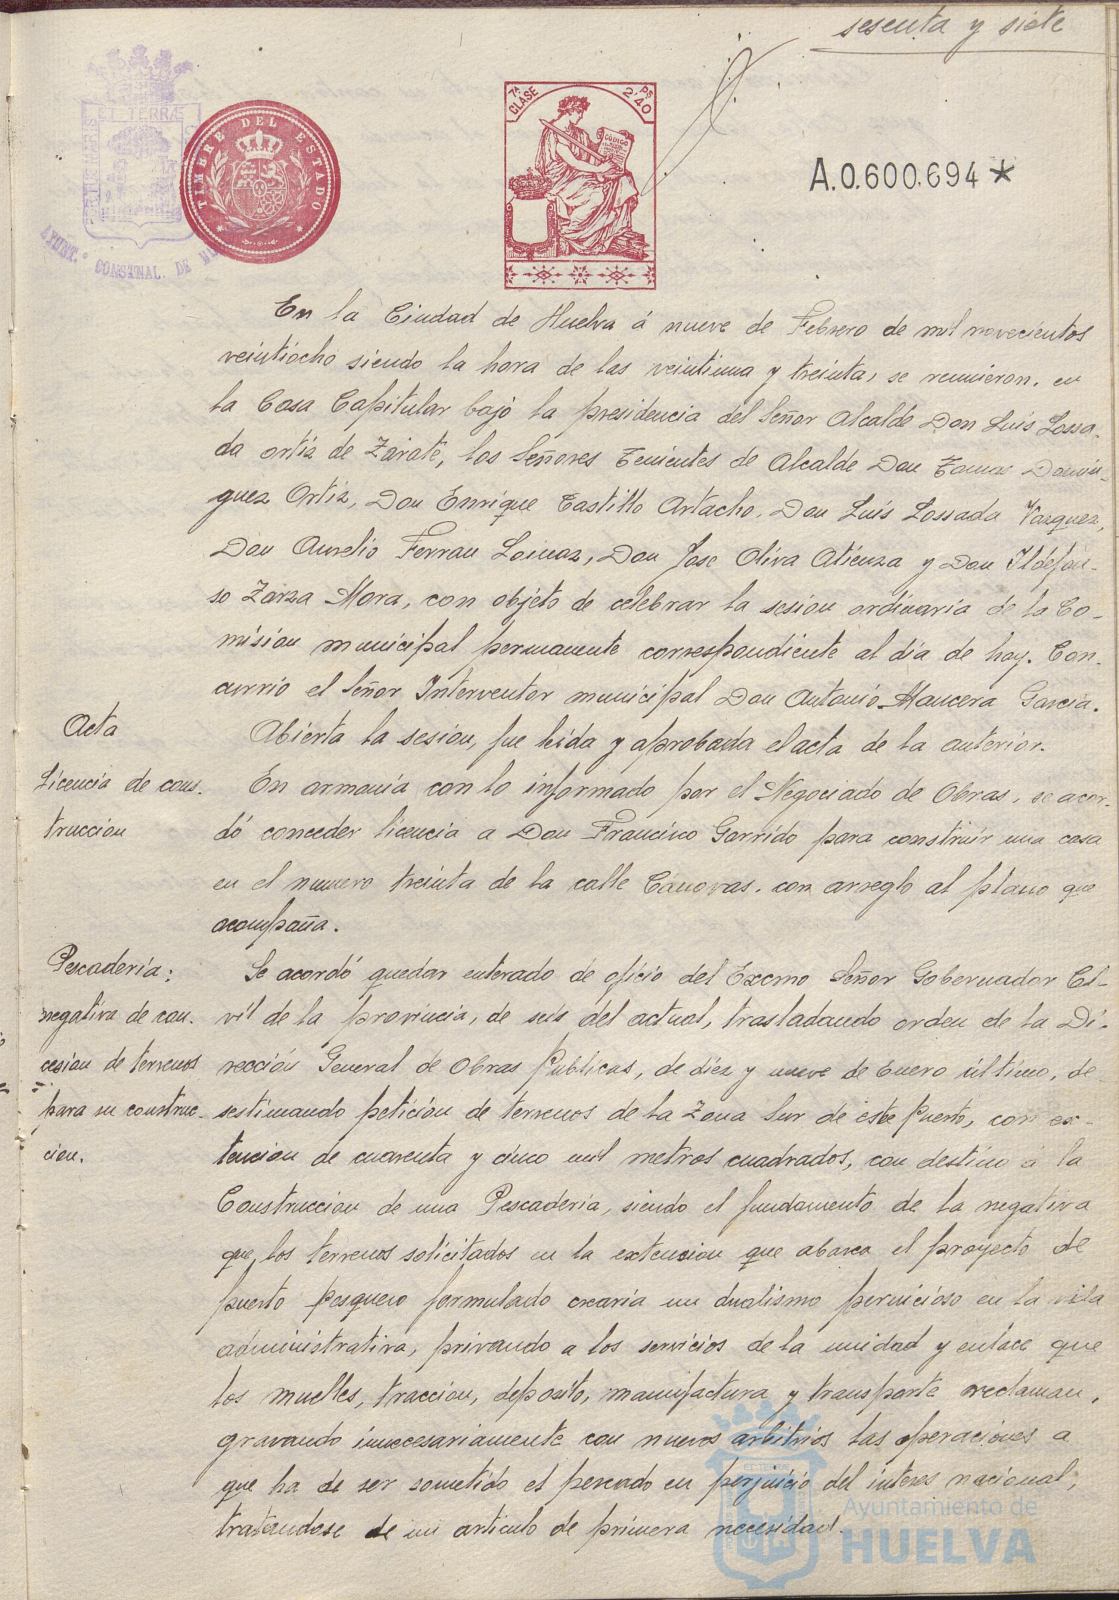 sesenta y siete
ET TERRÆ
AYUNT.º CONSTNAL. DE
TIMBRE DEL ESTADO
7ª CLASE
PS 2'40
CODIGO
A.0.600.694*
En la Ciudad de Huelva á nueve de Febrero de mil novecientos
veintiocho siendo la hora de las veintiuna y treinta, se reunieron en
la Casa Capitular bajo la presidencia del Señor Alcalde Don Luis Lossa-
da Ortiz de Zarate, los Señores Tenientes de Alcalde Don Tomas Domin-
guez Ortiz, Don Enrique Castillo Artacho, Don Luis Lossada Vazquez,
Don Aurelio Ferran Loinaz, Don Jose Oliva Atienza y Don Ildefon-
so Zarza Mora, con objeto de celebrar la sesion ordinaria de la Co-
mision municipal permanente correspondiente al dia de hoy. Con-
currio el Señor Interventor municipal Don Antonio Mancera Garcia.
Acta
Abierta la sesion, fue leida y aprobada el acta de la anterior.
Licencia de cons-
truccion
En armonia con lo informado por el Negociado de Obras, se acor-
dó conceder licencia a Don Francisco Garrido para construir una casa
en el numero treinta de la calle Cánovas, con arreglo al plano que
acompaña.
Pescaderia:
negativa de con-
cesion de terrenos
para su construc-
cion.
Se acordó quedar enterado de oficio del Excmo Señor Gobernador Ci-
vil de la provincia, de seis del actual, trasladando orden de la Di-
rección General de Obras Publicas, de diez y nueve de Enero último, de-
sestimando petición de terrenos de la Zona Sur de este Puerto, con ex-
tencion de cuarenta y cinco mil metros cuadrados, con destino á la
Construccion de una Pescaderia, siendo el fundamento de la negativa
que los terrenos solicitados en la extencion que abarca el proyecto de
puerto Pesquero formulado crearia un dualismo pernicioso en la vida
administrativa, privando a los servicios de la unidad y enlace que
los muelles, traccion, deposito, manufactura y transporte reclaman,
gravando innecesariamente con nuevos arbitrios las operaciones a
que ha de ser sometido el pescado en perjuicio del interes nacional,
tratandose de un articulo de primera necesidad.
Ayuntamiento de
HUELVA